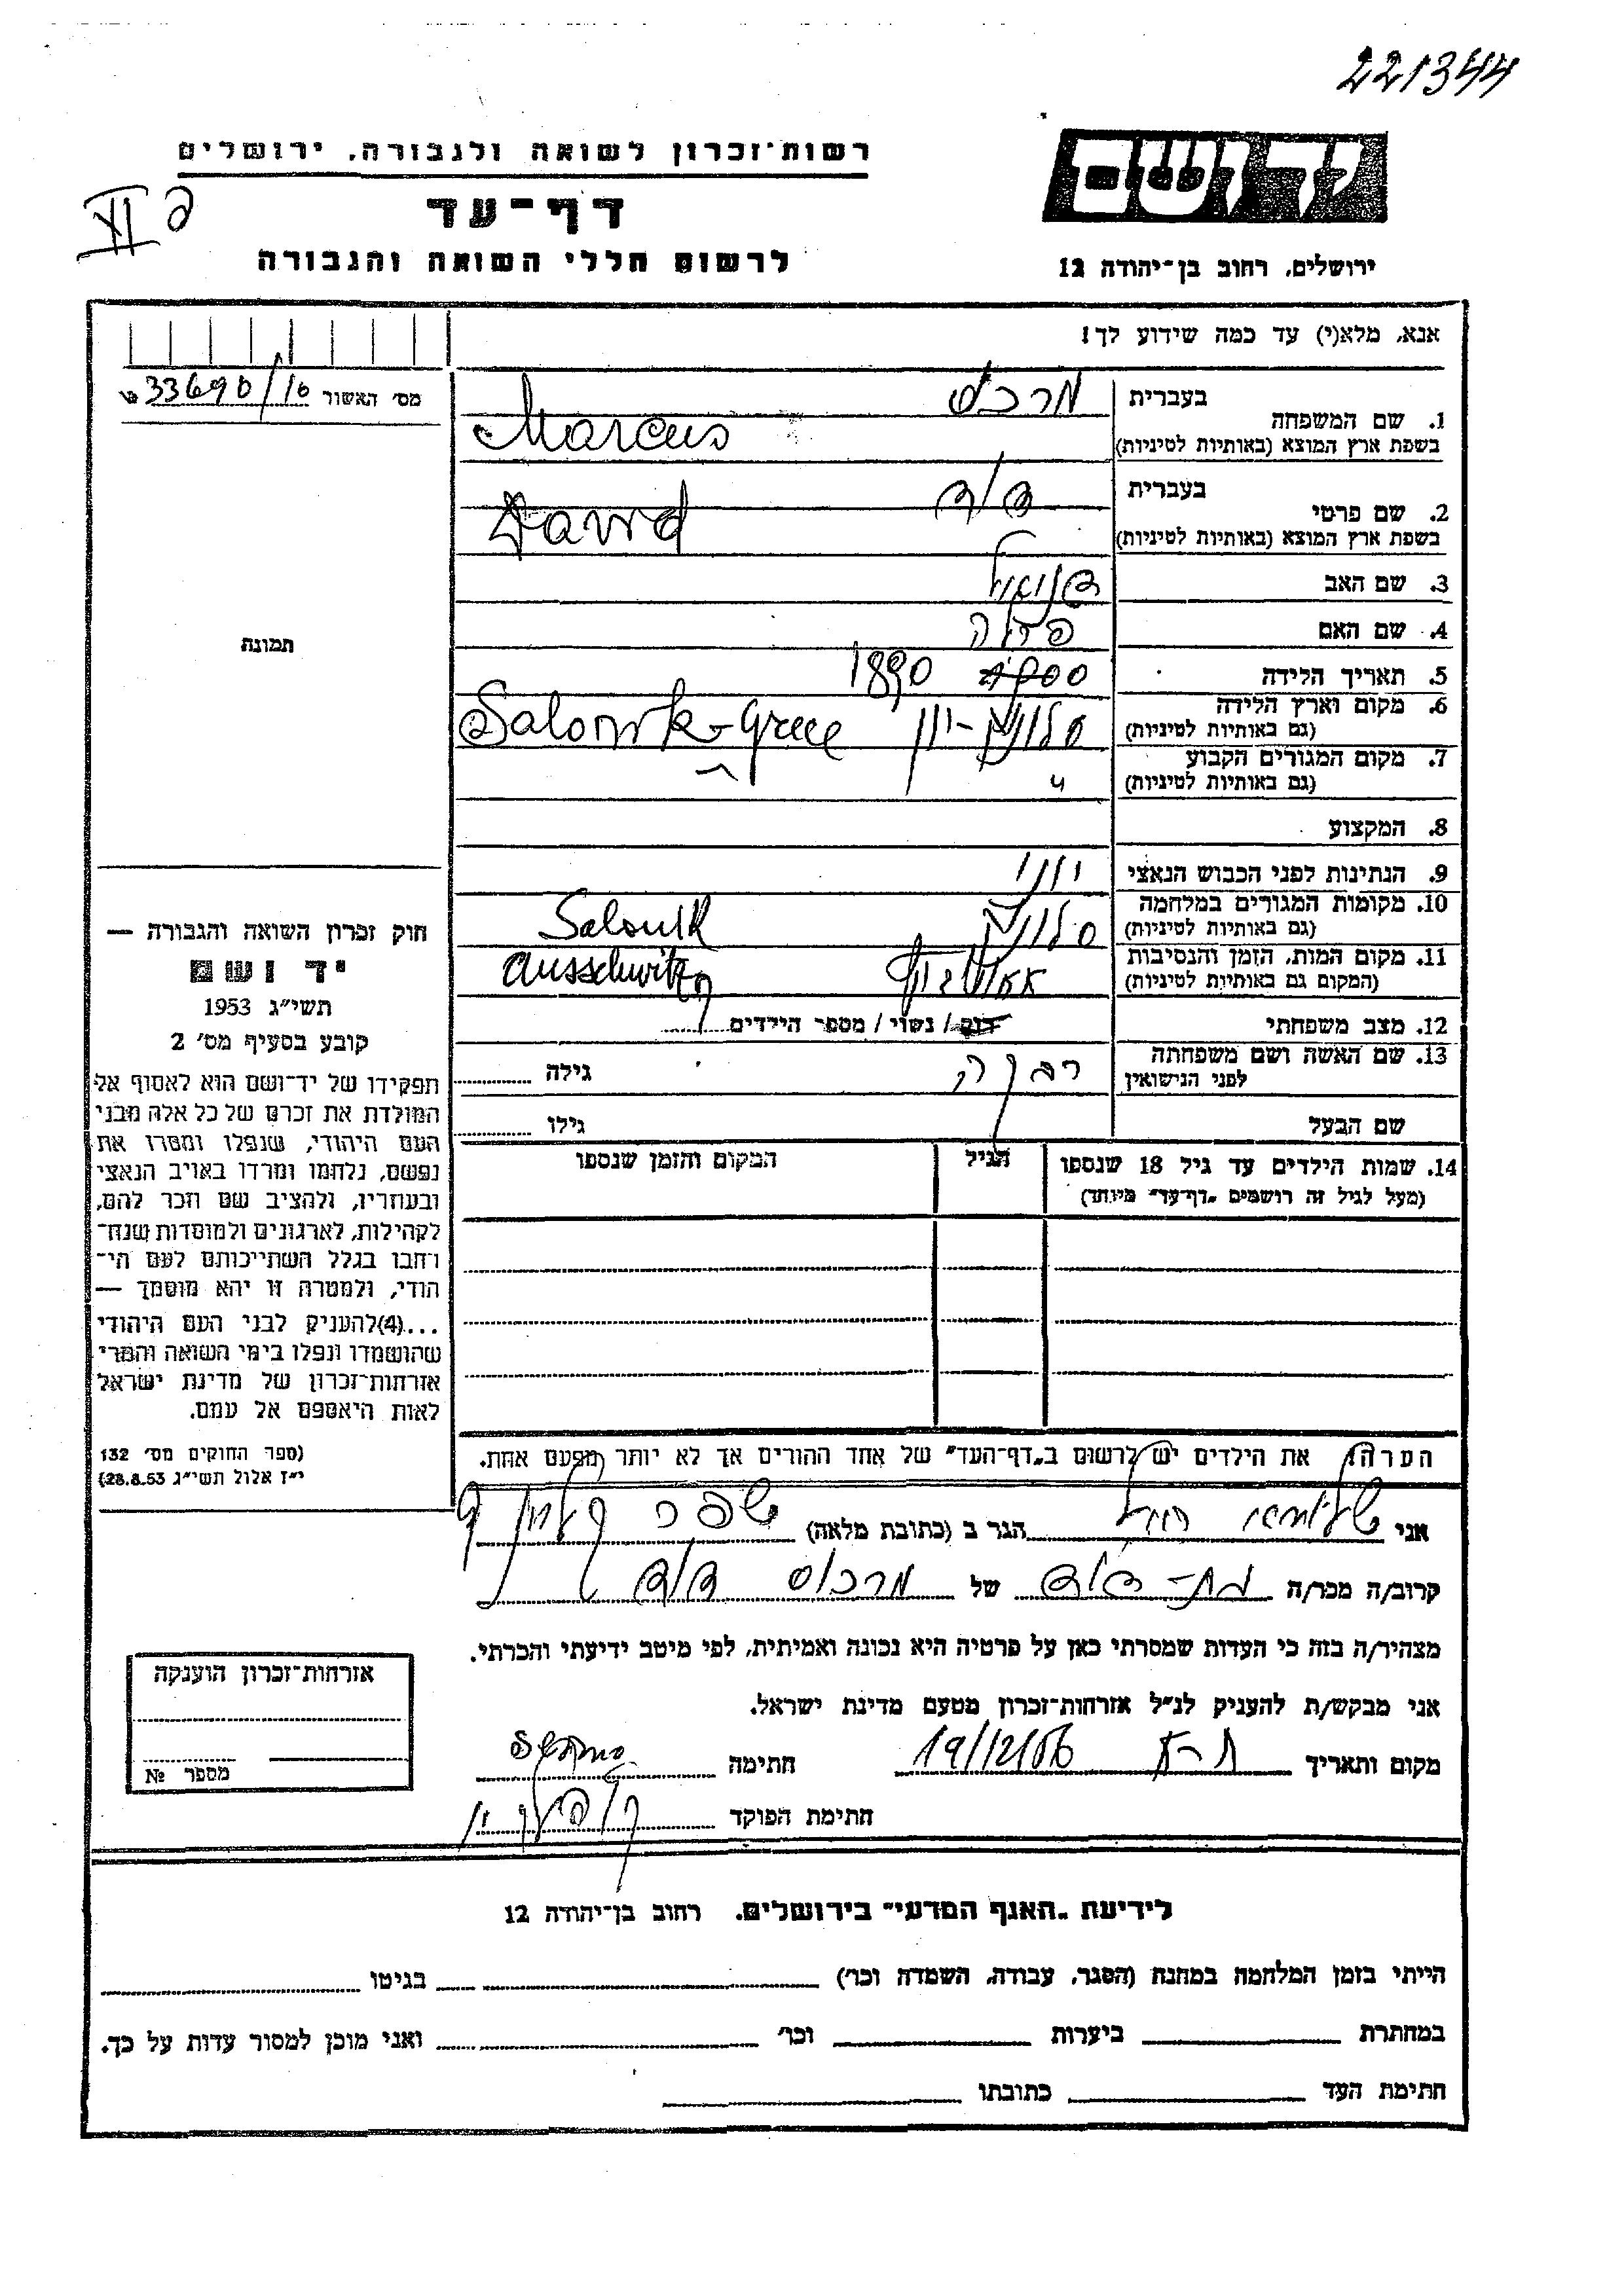 221344
רשות-זכרון לשואה ולגבורה, ירושלים
דף-עד
לרשום חללי השואה והגבורה
ידושם
ירושלים, רחוב בן-יהודה 12
אנא, מלא(י) עד כמה שידוע לך!
מס׳ האשור 33690/10
1. שם המשפחה בעברית מרכוס
בשפת ארץ המוצא (באותיות לטיניות) Marcus
2. שם פרטי בעברית דוד
בשפת ארץ המוצא (באותיות לטיניות) David
3. שם האב דניאל
4. שם האם
5. תאריך הלידה 1890
6. מקום וארץ הלידה סלוניק-יון Salonik-Greece
(גם באותיות לטיניות)
7. מקום המגורים הקבוע "
(גם באותיות לטיניות)
8. המקצוע
9. הנתינות לפני הכבוש הנאצי יוני
10. מקומות המגורים במלחמה סלוניק Salonik
(גם באותיות לטיניות)
11. מקום המות, הזמן והנסיבות אאושביץ Ausschwitz
(המקום גם באותיות לטיניות)
12. מצב משפחתי רווק / נשוי / מספר הילדים
13. שם האשה ושם משפחתה רבקה גילה
לפני הנישואין
שם הבעל גילו
14. שמות הילדים עד גיל 18 שנספו הגיל המקום והזמן שנספו
(מעל לגיל זה רושמים "דף-עד" מיוחד)
הערה: את הילדים יש לרשום ב"דף-העד" של אחד ההורים אך לא יותר מפעם אחת.
תמונה
חוק זכרון השואה והגבורה —
יד ושם
תשי״ג 1953
קובע בסעיף מס׳ 2
תפקידו של יד-ושם הוא לאסוף אל
המולדת את זכרם של כל אלה מבני
העם היהודי, שנפלו ומסרו את
נפשם, נלחמו ומרדו באויב הנאצי
ובעוזריו, ולהציב שם וזכר להם,
לקהילות, לארגונים ולמוסדות שנח-
רבו בגלל השתייכותם לעם הי-
הודי, ולמטרה זו יהא מוסמך —
...(4) להעניק לבני העם היהודי
שהושמדו ונפלו בימי השואה והמרי
אזרחות-זכרון של מדינת ישראל
לאות היאספם אל עמם.
(ספר החוקים מס׳ 132
י״ז אלול תשי״ג 28.8.53)
אני הגר ב (כתובת מלאה)
קרוב/ה מכר/ה בת-דוד של מרכוס דוד
מצהיר/ה בזה כי העדות שמסרתי כאן על פרטיה היא נכונה ואמיתית, לפי מיטב ידיעתי והכרתי.
אני מבקש/ת להעניק לנ״ל אזרחות-זכרון מטעם מדינת ישראל.
מקום ותאריך ת-א 19/12/56 חתימה
חתימת הפוקד
אזרחות-זכרון הוענקה
מספר №
לידיעת "האגף המדעי" בירושלים. רחוב בן-יהודה 12
הייתי בזמן המלחמה במחנה (הסגר, עבודה, השמדה וכו׳) בגיטו
במחתרת ביערות וכו׳ ואני מוכן למסור עדות על כך.
חתימת העד כתובתו